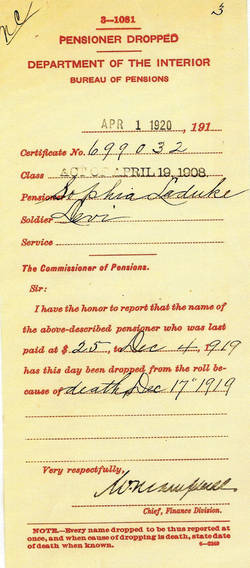 NC
3
3-1081
PENSIONER DROPPED
DEPARTMENT OF THE INTERIOR
BUREAU OF PENSIONS
APR 1 1920, 191
Certificate No. 699032
Class ACT OF APRIL 19, 1908.
Pensioner Sophia Laduke
Soldier Levi
Service
The Commissioner of Pensions.
Sir:
I have the honor to report that the name of
the above-described pensioner who was last
paid at $ 25, to Dec 4, 1919
has this day been dropped from the roll be-
cause of death, Dec 17" 1919
Very respectfully,
Chief, Finance Division.
NOTE.—Every name dropped to be thus reported at
once, and when cause of dropping is death, state date
of death when known.